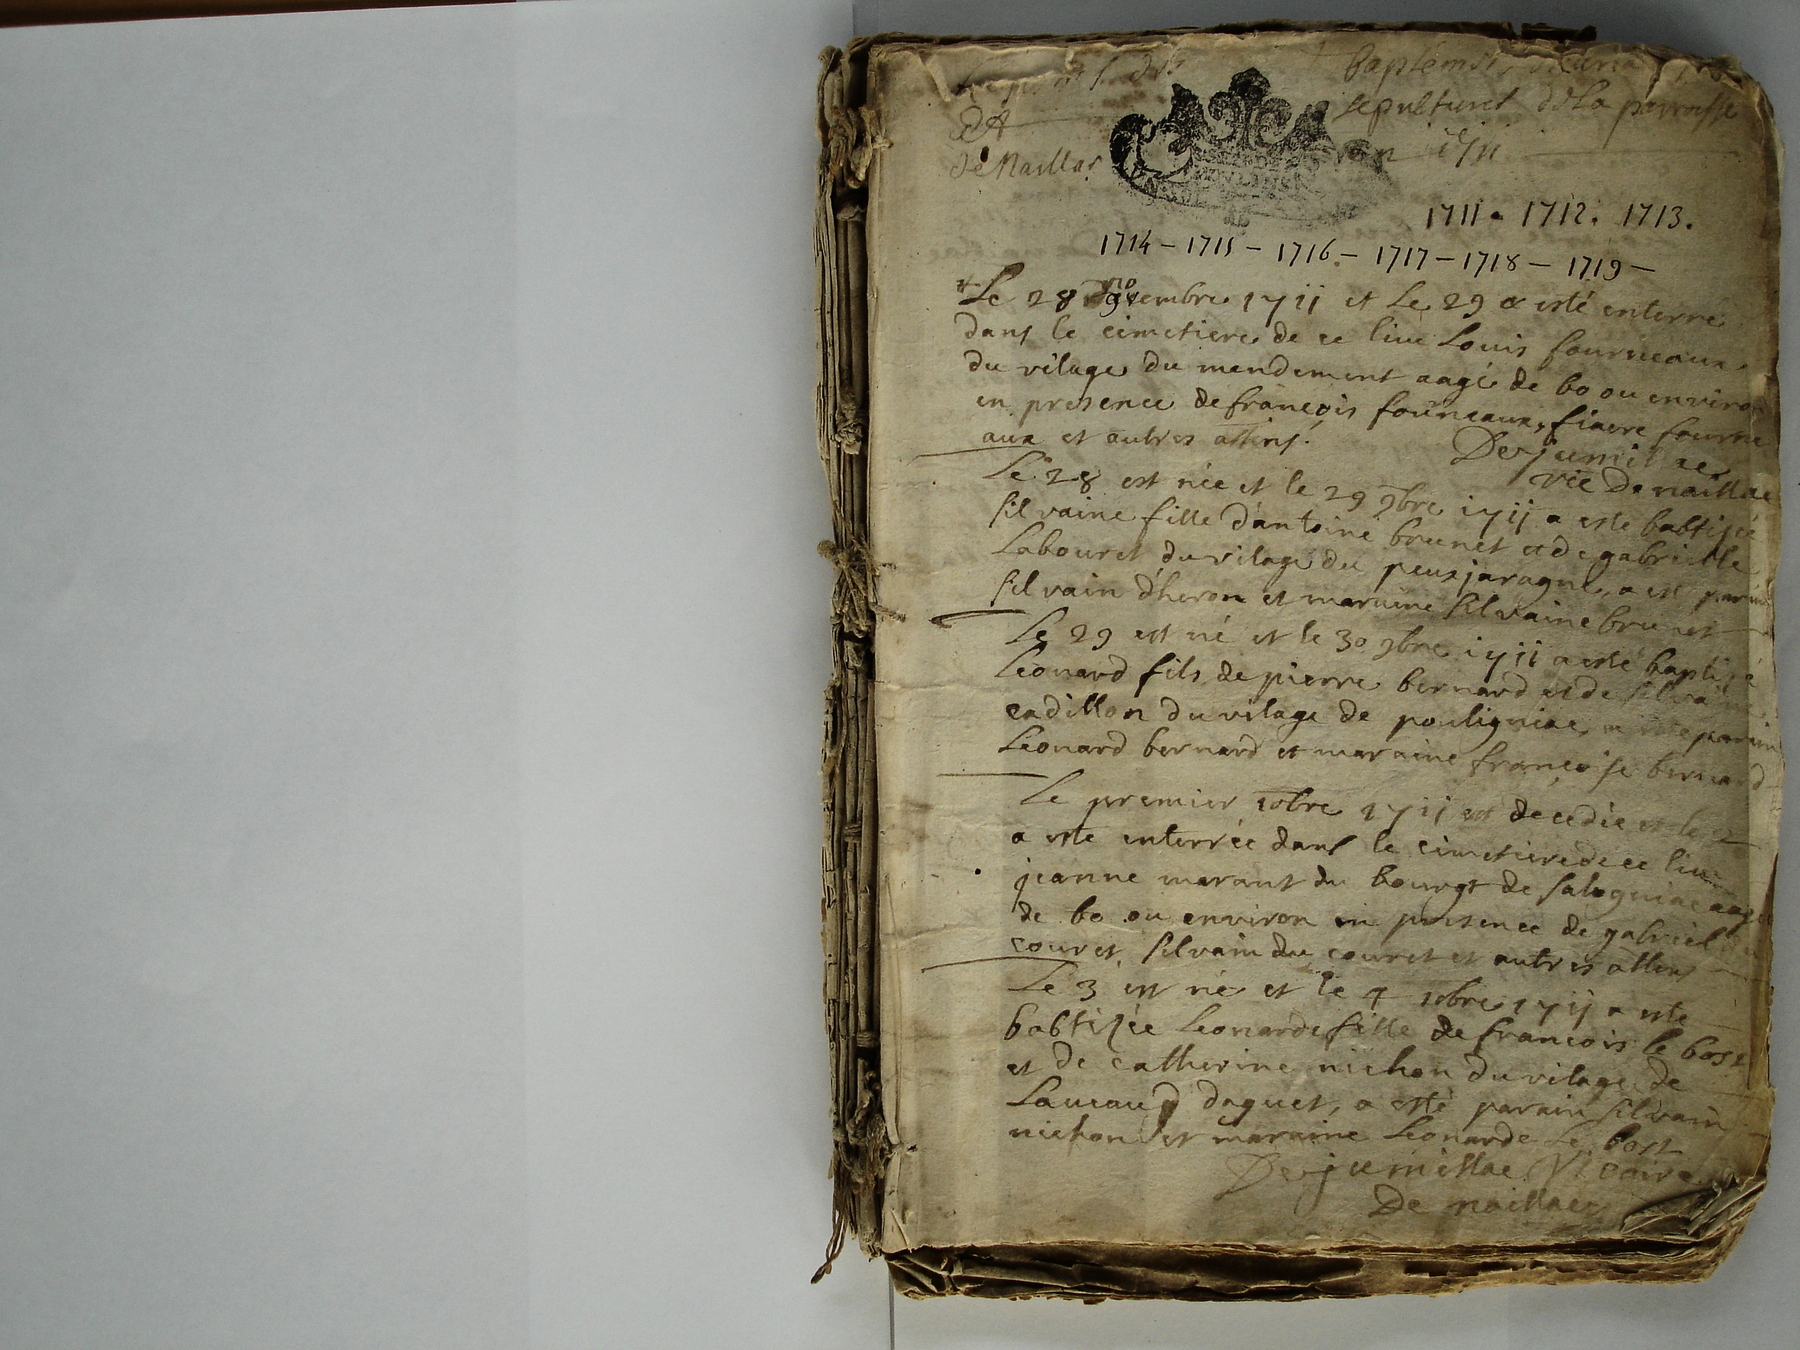 baptemes
sepultures de La parroisse
de Naillac
1711. 1712. 1713.
1714 – 1715 – 1716 – 1717 – 1718 – 1719 –
Le 28 novembre 1711 et Le 29 a esté enterré
dans le cimetiere de ce lieu Louis fourneaux
du vilage du mendement aagé de 60 ou environ
en presence de françois fourneaux, fiacre fourne
aux et autres
Dejumillac
vic De naillac
Le 28 est née et le 29 9bre 1711 a esté babtisée
silvaine fille d'antoine brunet et de gabrielle
Labouret du vilage du peuxjaragne, a est parain
silvain d'heron et maraine silvaine brunet
Le 29 est né et le 30 9bre 1711 a esté baptisé
Leonard fils de pierre bernard et de silvaine
cadillon du vilage de pouligniac, parain
Leonard bernard et maraine françoise bernard
Le premier 10bre 1711 est decedée et le 2
a este enterrée dans le cimetiere de ce lieu
jeanne marant du bourgt de salagniac aagée
de 60 ou environ en presence de gabriel du
couret, silvain du couret et autres
Le 3 est née et le 4 10bre 1711 a este
babtisée Leonarde fille de françois le bost
et de catherine nichon du vilage de
daguet, a esté parain silvain
nichon et maraine Leonarde Le bost
Dejumillac Vicaire
De naillac